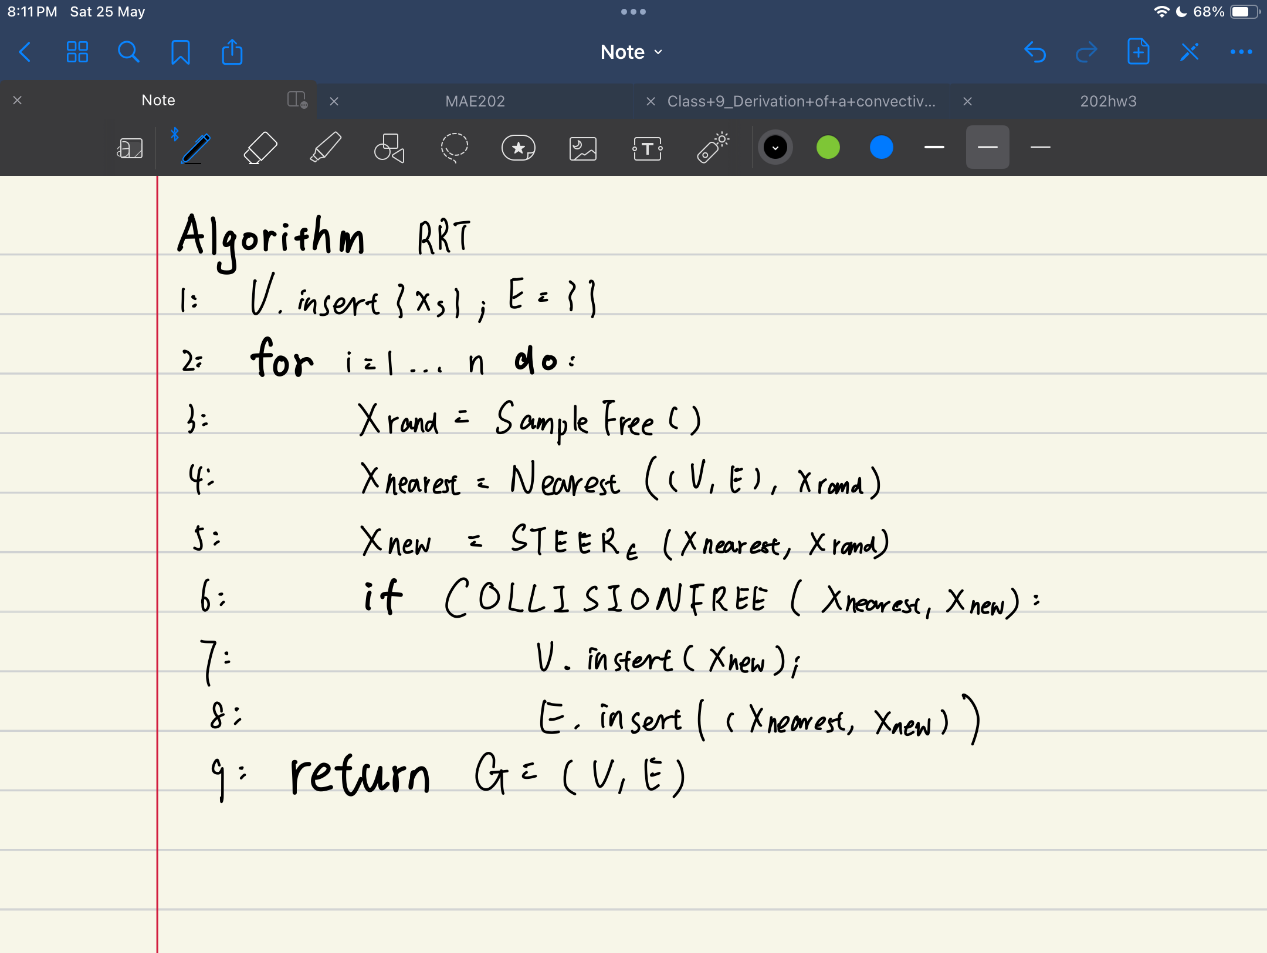 8:11 PM Sat 25 May
68%
Note
Note
MAE202
Class+9_Derivation+of+a+convectiv...
202hw3
T
Algorithm RRT
1: V.insert{xs}; E = {}
2: for i=1... n do:
3: Xrand = SampleFree()
4: Xnearest = Nearest((V, E), Xrand)
5: Xnew = STEERε(Xnearest, Xrand)
6: if COLLISIONFREE(Xnearest, Xnew):
7: V.instert(Xnew);
8: E.insert((Xnearest, Xnew))
9: return G=(V, E)